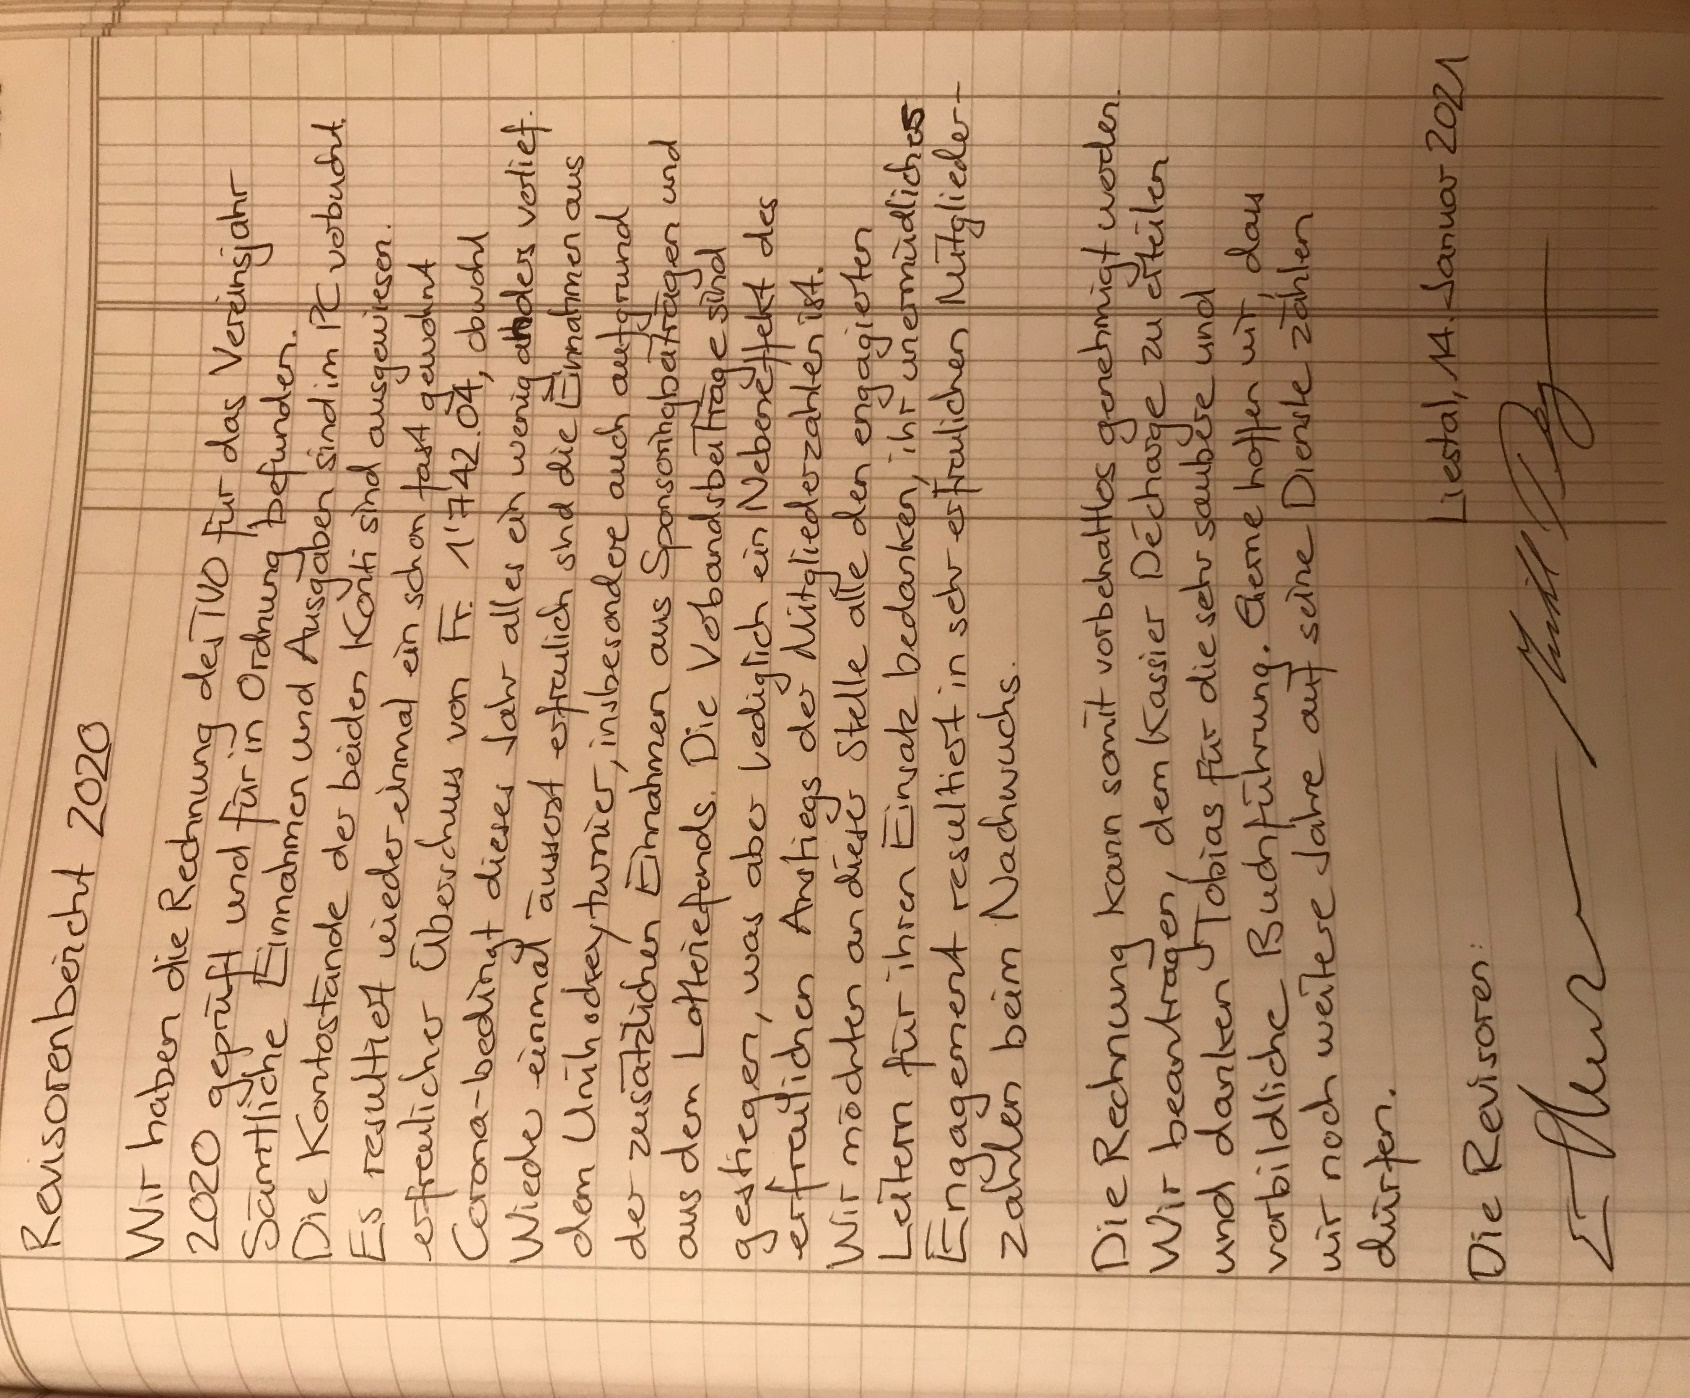 Revisorenbericht 2020
Wir haben die Rechnung des TVO für das Vereinsjahr
2020 geprüft und für in Ordnung befunden.
Sämtliche Einnahmen und Ausgaben sind im PC verbucht.
Die Kontostände der beiden Konti sind ausgewiesen.
Es resultiert wieder einmal ein schon fast gewohnt
erfreulicher Überschuss von Fr. 1'742.04, obwohl
Corona-bedingt dieses Jahr alles ein wenig anders verlief.
Wieder einmal äusserst erfreulich sind die Einnahmen aus
dem Unihockeyturnier, insbesondere auch aufgrund
der zusätzlichen Einnahmen aus Sponsoringbeiträgen und
aus dem Lotteriefonds. Die Verbandsbeiträge sind
gestiegen, was aber lediglich ein Nebeneffekt des
erfreulichen Anstiegs der Mitgliederzahlen ist.
Wir möchten an dieser Stelle alle den engagierten
Leitern für ihren Einsatz bedanken, ihr unermüdliches
Engagement resultiert in sehr erfreulichen Mitglieder-
zahlen beim Nachwuchs.
Die Rechnung kann somit vorbehaltlos genehmigt werden.
Wir beantragen, dem Kassier Décharge zu erteilen
und danken Tobias für die sehr saubere und
vorbildliche Buchführung. Gerne hoffen wir, dass
wir noch weitere Jahre auf seine Dienste zählen
dürfen.
Liestal, 14. Januar 2021
Die Revisoren: